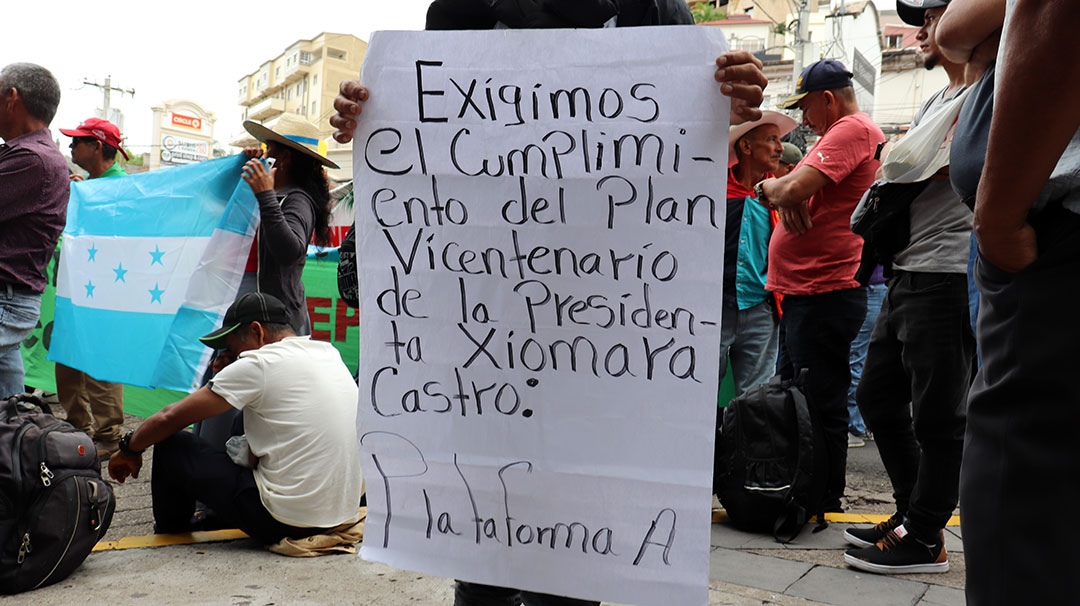 Exígimos
el Cumplimi-
ento del Plan
Vicentenario
de la Presiden-
ta Xiomara
Castro:
Plataforma A
CIRCLE K
EP